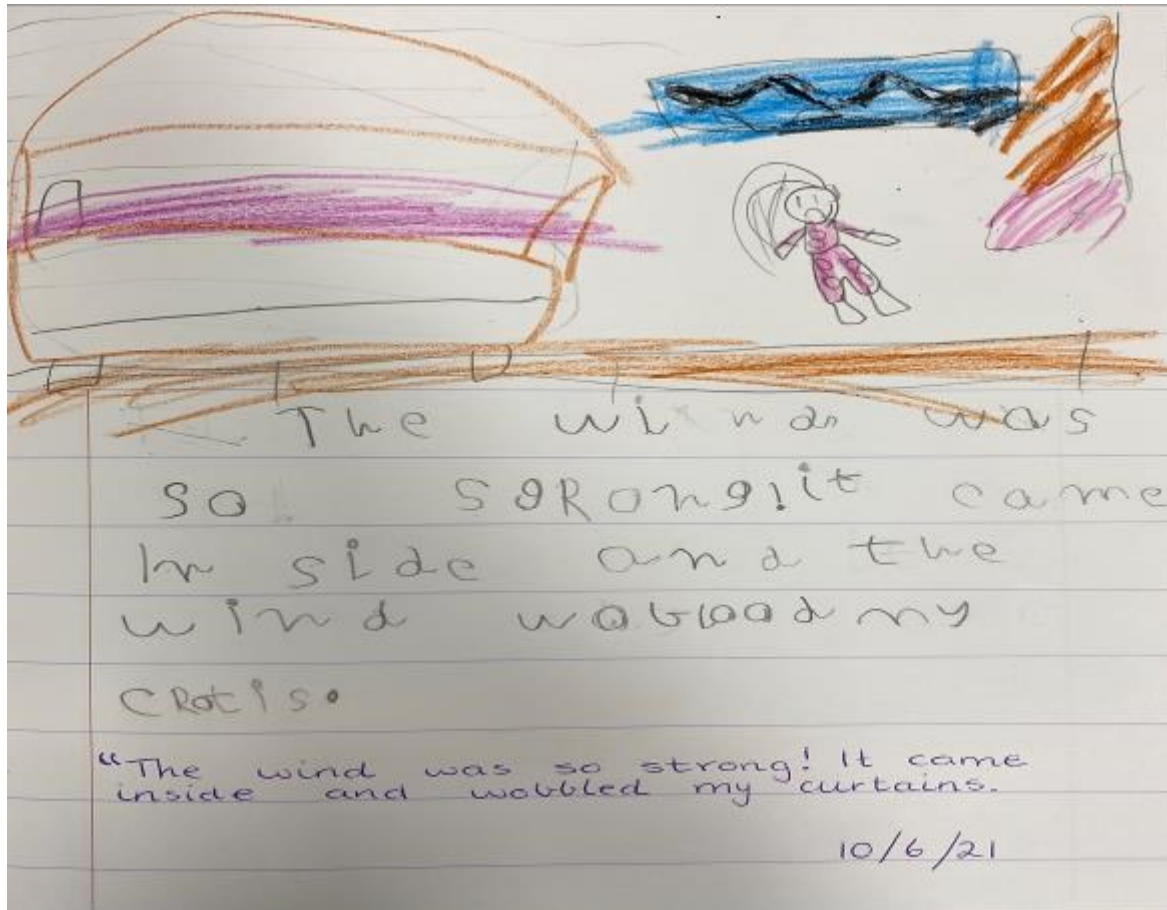 The wind was
so sgRong!it came
In side and the
wind wobload my
CRotis.
"The wind was so strong! It came
inside and wobbled my curtains.
10/6/21